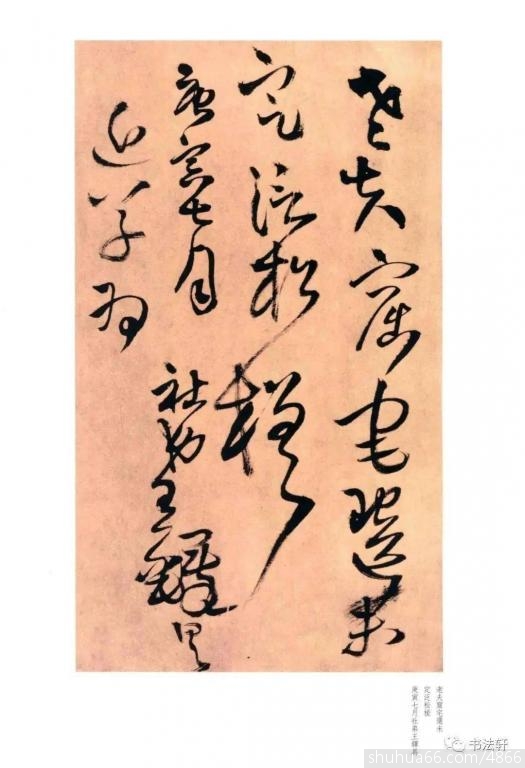 老夫窟宅還未
定泛松槎
庚寅七月
社弟王鐸具
老夫窟宅還未
定泛松槎
庚寅七月社弟王鐸具
书法轩
shuhua66.com/4866